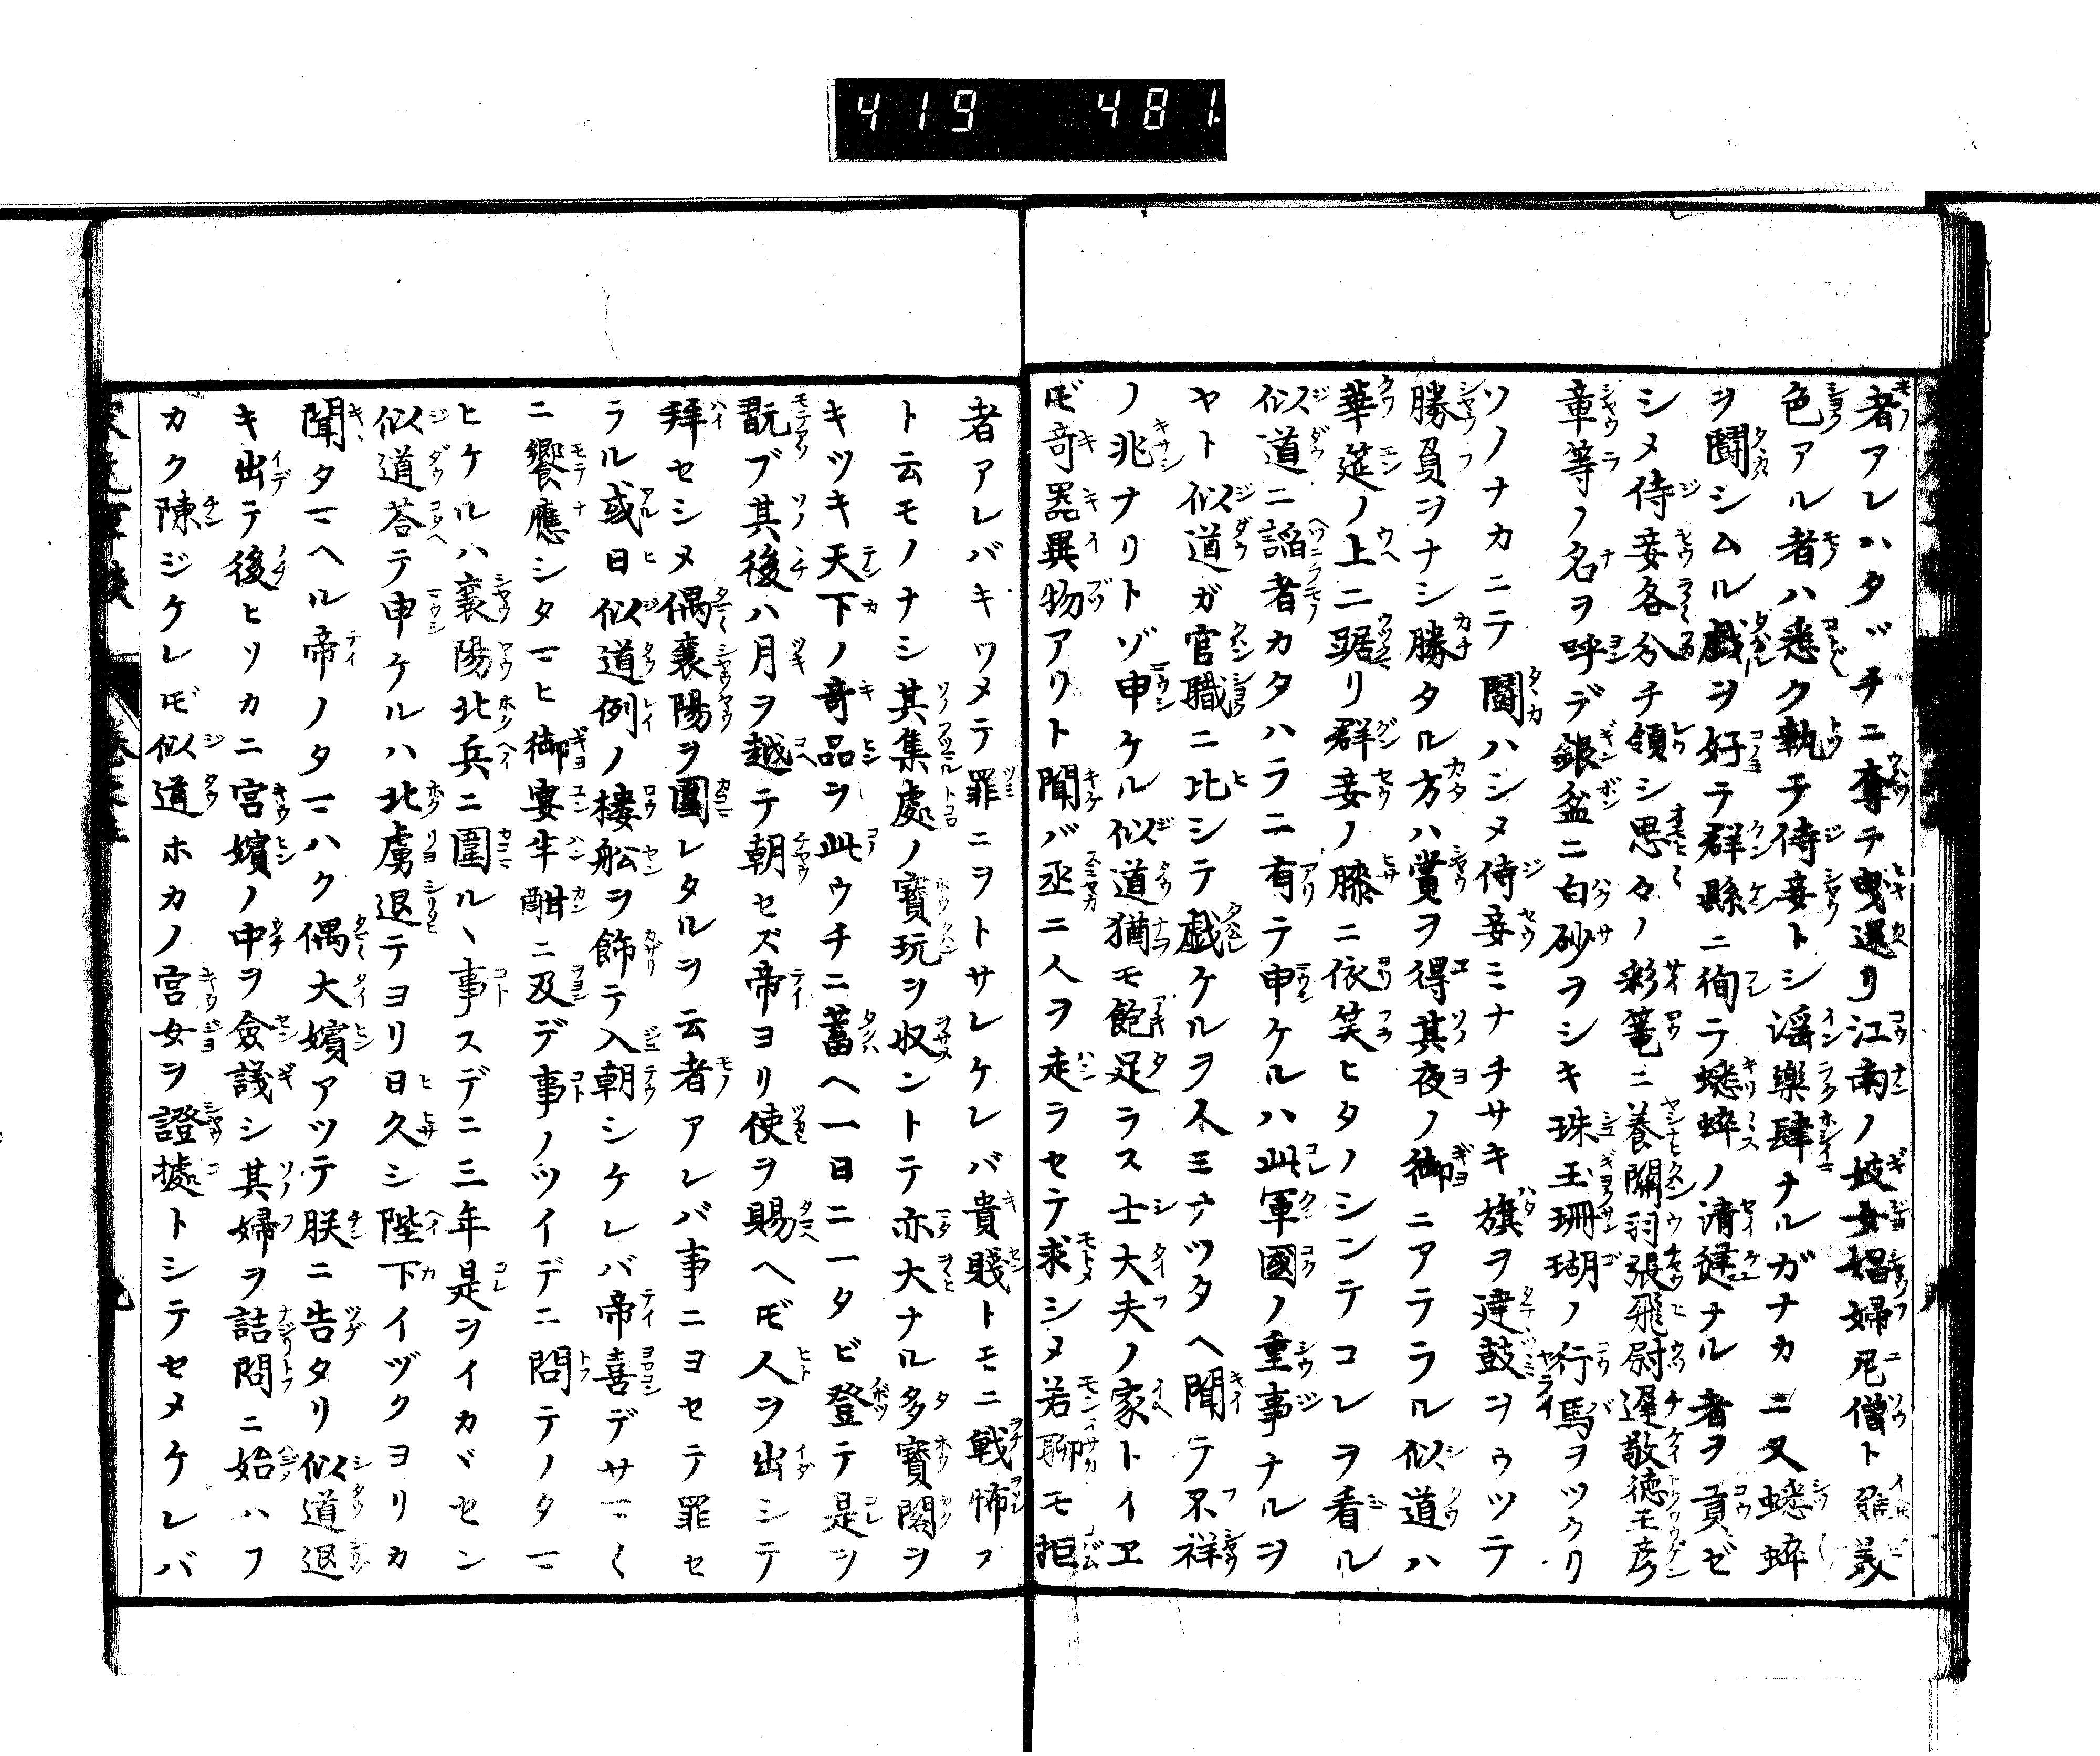 419 481.
者アレハタヾチニ奪テ曳還リ江南ノ妓女娼婦尼僧ト雖美
色アル者ハ悉ク執テ侍妾トシ淫樂肆ナルガナカニ又蟋蟀
ヲ鬪シムル戯ヲ好テ群縣ニ徇テ蟋蟀ノ清健ナル者ヲ貢ゼ
シメ侍妾各分チ領シ思々ノ彩篭ニ養關羽張飛尉遲敬徳王彦
章等ノ名ヲ呼デ銀盆ニ白砂ヲシキ珠玉珊瑚ノ行馬ヲツクリ
ソノナカニテ鬪ハシメ侍妾ミナチサキ旗ヲ建鼓ヲウツテ
勝負ヲナシ勝タル方ハ賞ヲ得其夜ノ御ニアテラル似道ハ
華筵ノ上ニ踞リ群妾ノ膝ニ依笑ヒタノシンテコレヲ看ル
似道ニ謟者カタハラニ有テ申ケルハ此軍國ノ重事ナルヲ
ヤト似道ガ官職ニ比シテ戯ケルヲ人ミナツタヘ聞テ不祥
ノ兆ナリトゾ申ケル似道猶モ飽足ラス士大夫ノ家トイヱ
𪜈奇器異物アリト聞バ亟ニ人ヲ走ラセテ求シメ若聊モ拒
者アレバキワメテ罪ニヲトサレケレバ貴賤トモニ戦怖ヌ
ト云モノナシ其集處ノ寶玩ヲ収ントテ亦大ナル多寶閣ヲ
キツキ天下ノ奇品ヲ此ウチニ蓄ヘ一日ニ一タビ登テ是ヲ
翫ブ其後ハ月ヲ越テ朝セズ帝ヨリ使ヲ賜ヘ𪜈人ヲ出シテ
拜セシメ偶襄陽ヲ圍レタルヲ云者アレバ事ニヨセテ罪セ
ラル或日似道例ノ樓舩ヲ飾テ入朝シケレバ帝喜デサマ〱
ニ饗應シタマヒ御宴半酣ニ及デ事ノツイデニ問テノタマ
ヒケルハ襄陽北兵ニ圍ルヽ事スデニ三年是ヲイカヾセン
似道荅テ申ケルハ北虜退テヨリ日久シ陛下イヅクヨリカ
聞タマヘル帝ノタマハク偶大嬪アツテ朕ニ告タリ似道退
キ出テ後ヒソカニ宮嬪ノ中ヲ僉議シ其婦ヲ詰問ニ始ハフ
カク陳ジケレ𪜈似道ホカノ宮女ヲ證據トシテセメケレバ